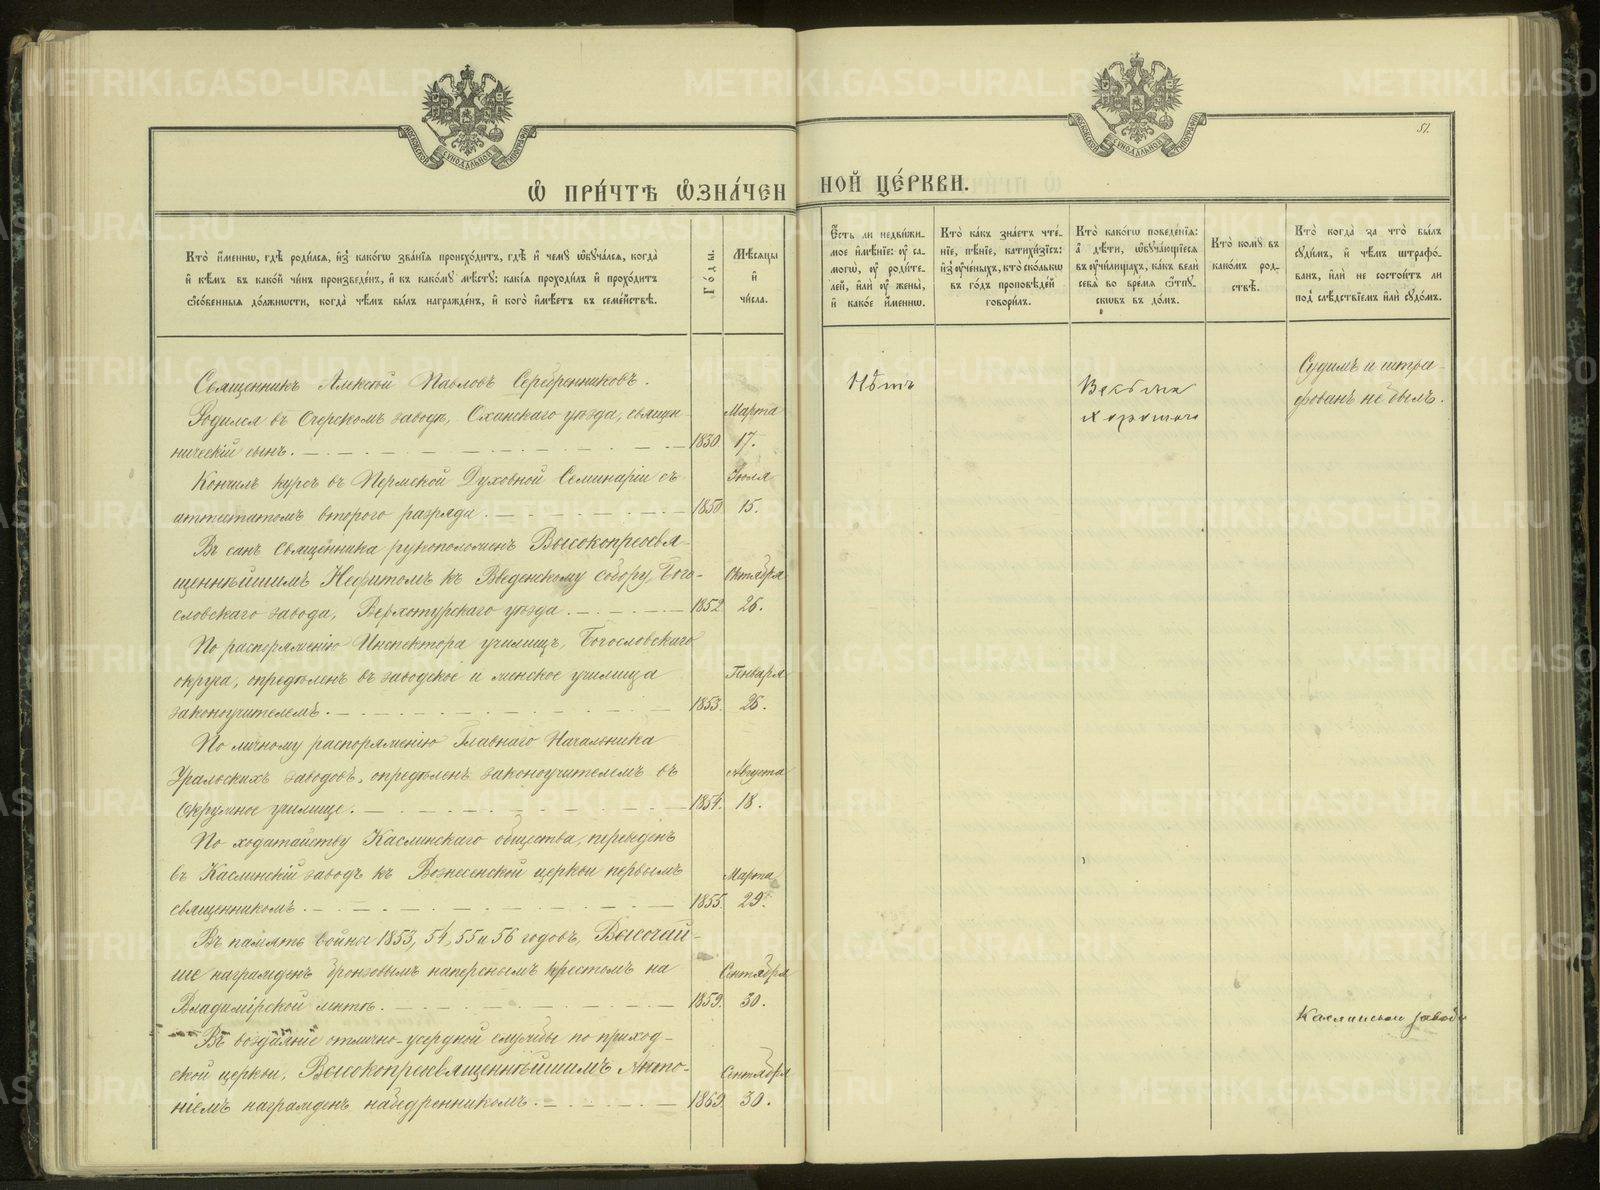 51.
Ѡ ПРИ́ЧТѢ Ѡ҆ЗНА́ЧЕННОЙ ЦЕ́РКВИ.
Кто̀ и҆́менно, гдѣ̀ роди́лся, и҆з̾ како́гѡ зва́нїѧ происхо́дитъ, гдѣ̀ и҆ чемꙋ̀ ѡ҆бꙋча́лся, когда̀
и҆ кѣ́мъ въ како́й чи́нъ произведе́нъ, и҆ къ како́мꙋ мѣ́стꙋ: какі̑ѧ проходи́лъ и҆ прохо́дитъ
ѻ҆со́бенныѧ до́лжности, когда̀ чѣ́мъ бы́лъ награжде́нъ, и҆ кого̀ и҆мѣ́етъ въ семе́йствѣ.
Го́ды.
Мѣ́сяцы
и҆
чи́сла.
Є҆́сть ли недви́жи-
мое и҆мѣ́нїе: ᲂу҆ са-
могѡ̀, ᲂу҆ роди́те-
лей, и҆лѝ ᲂу҆ жены̀,
и҆ како́е и҆́менно.
Кто̀ ка́къ зна́етъ чте́-
нїе, пѣ́нїе, катихи́зїсъ:
и҆з̾ ᲂу҆че́ныхъ, кто̀ ско́лькѡ
въ го́дъ проповѣ́дей
говори́лъ.
Кто̀ како́гѡ поведе́нїѧ:
а҆ дѣ́ти, ѡ҆бꙋча́ющїеся
въ ᲂу҆чи́лищахъ, ка́къ велѝ
себѧ̀ во вре́мѧ ѿпꙋ-
сковъ въ до́мъ.
Кто̀ комꙋ̀ въ
како́мъ род-
ствѣ̀.
Кто̀ когда̀ за что̀ бы́лъ
сꙋди́мъ, и҆ чѣ́мъ штрафо́-
ванъ, и҆лѝ не состои́тъ ли
под̾ слѣ́дствїемъ и҆лѝ сꙋдо́мъ.
Священникъ Алексѣй Павловъ Серебренниковъ.
Родился въ Очерскомъ заводѣ, Оханскаго уѣзда, священ-
ническій сынъ. 1830. Марта 17.
Кончилъ курсъ въ Пермской Духовной Семинаріи съ
аттестатомъ второго разряда. 1850 Іюля 15.
Въ санъ Священника рукоположенъ Высокопреосвя-
щеннѣйшимъ Неофитомъ къ Введенскому собору, Бого-
словскаго завода, Верхотурскаго уѣзда. 1852 Октября 26.
По распоряженію Инспектора училищъ, Богословскаго
округа, опредѣленъ въ заводское и женское училища
законоучителемъ. 1853. Генваря 26.
По личному распоряженію Главнаго Начальника
Уральскихъ заводовъ, опредѣленъ законоучителемъ въ
Окружное училище. 1854. Августа 18.
По ходатайству Каслинскаго общества, переведенъ
въ Каслинскій заводъ къ Вознесенской церкви первымъ
священникомъ. 1855. Марта 29.
Въ память войны 1853, 54, 55 и 56 годовъ, Высочай-
ше награжденъ бронзовымъ наперснымъ крестомъ на
Владимірской лентѣ. 1859. Сентября 30.
Въ воздаяніе отлично-усердной службы по приход-
ской церкви, Высокопреосвященнѣйшимъ Анто-
ніемъ награжденъ набедренникомъ. 1869 Сентября 30.
Нѣтъ
Весьма
хорошаго
Судимъ и штра-
фованъ не былъ.